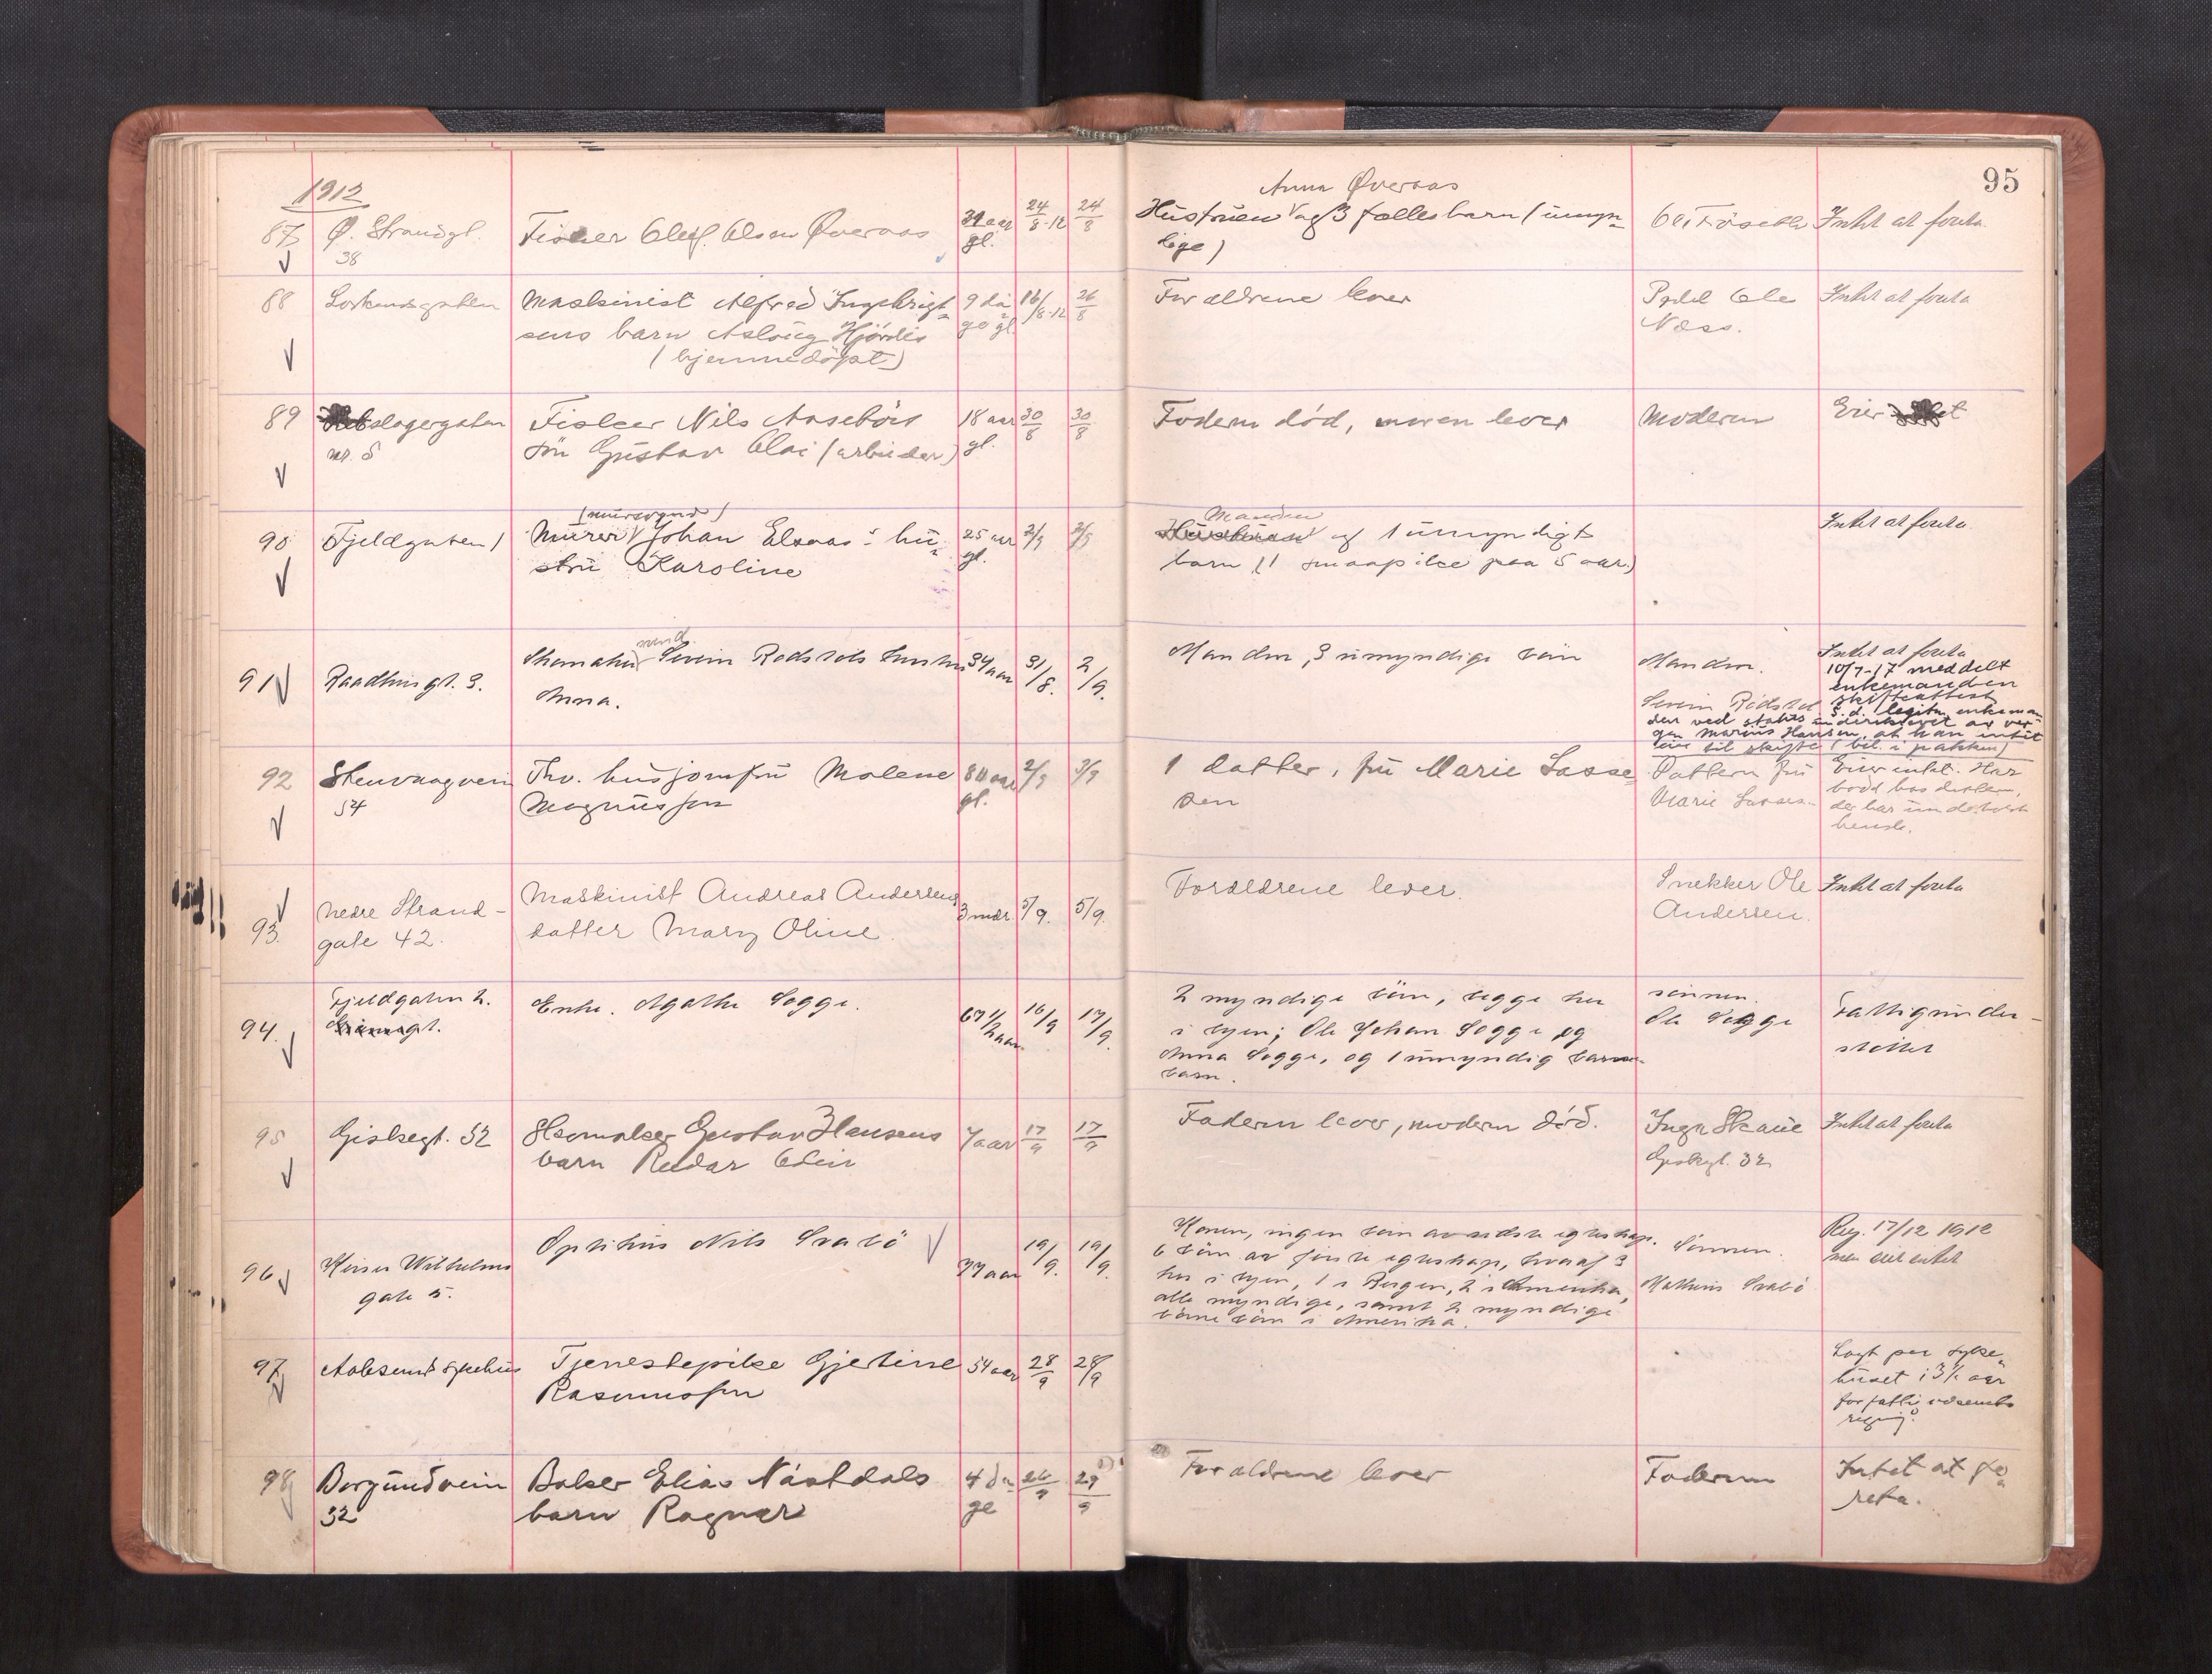 1912
95
87
Ø. Strandgt.
38
Fisker Oluf Olsen Øveraas
aar
gl.
24/8-12
24/8
Anna Øveraas
Hustruen og 3 fælles barn (umyn-
dige)
Intet at foreta
88
Maskinist Alfred Ingebrigt-
sens barn Aslaug Hjördis
(hjemmedöpt)
9 da-
ge gl.
16/8-12
26/8
Forældrene lever
Ole
Næss.
Intet at foreta
89
slagergaten
nr. 5
Fisker Nils Aasebös
sön Gustav Olai (arbeider)
18 aar
gl.
30/8
30/8
Faderen död, moren lever
Moderen
Eier intet
90
Fjeldgaten 1
(mursvend)
Murer Johan Elsaas's hu-
stru Karoline
25 aar
gl.
2/9
2/9
Manden
Hustruen og 1 umyndigt
barn (1 smaapike paa 5 aar)
Intet at foreta
91
Raadhusgt. 3.
Severin Rödsets hustru
Anna.
34 aar
31/8.
2/9.
Manden, 3 umyndige barn
Manden.
Severin Rödset
Intet at foreta
10/7-17 meddelt
enkemanden
skifteattest
92
Stenvaagveien
54
Fhv. husjomfru Malene
Magnussen
80 aar
gl.
2/9
3/9
1 datter, fru Marie Sasse-
sen
Datteren fru
Marie
Eier intet. Har
bodd hos datteren,
der har underholdt
hende.
93.
Nedre Strand-
gate 42.
Maskinist Andreas Andersens
datter Mary Oline
3 mdr.
5/9.
5/9.
Forældrene lever.
Snekker Ole
Andersen.
Intet at foreta
94.
Fjeldgaten 2.
Enke Agathe Sogge.
67 1/2 aar
16/9
17/9.
2 myndige barn, begge her
i byen; Ole Johan Sogge og
Anna Sogge, og 1 umyndig barne-
barn.
sönnen.
Ole Sogge
Fattigunder-
støttet
95
Giskegt. 32
Skomaker Gustav Hansens
barn Reidar Odin
7 aar
17/9
17/9
Faderen lever, moderen död.
Inga Skaue
Giskegt. 32
Intet at foreta
96
Keiser Wilhelms
gate 5.
Optikus Nils Svabö
77 aar
19/9.
19/9.
Konen, ingen barn av sidste egteskap.
6 barn av første egteskap, hvoraf 3
her i byen, 1 i Bergen, 2 i Amerika,
alle myndige, samt 2 myndige
barnebarn i Amerika.
Sönnen.
Mathias Svabö
Reg. 17/12 1912
men eiet intet
97
Aalesund sykehus
Tjenestepike Gjertine
Rasmussen
54 aar
28/9
28/9
Lagt paa syke-
huset i 3 1/2 aar
for
98
Borgundveien
32
Baker Elias Nástdals
barn Ragnar
4 da-
ge
26/9
29/9
Forældrene lever
Faderen
Intet at fo-
reta.